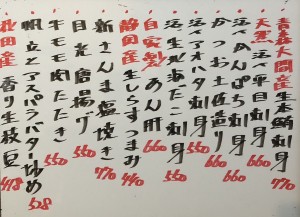 青森大間産生本鮪刺身 770
天然 活〆平目刺身 660
活〆かんぱち刺身 660
かつお土佐造り 550
活〆アオハタ刺身
活〆生北海だこ刺身
自家製 あん肝 660
静岡産 生しらすつまみ 440
新さんま塩焼き 770
目光唐揚げ 550
牛モモ肉たたき 550
帆立とアスパラバター炒め 528
北田産 香り生枝豆 418